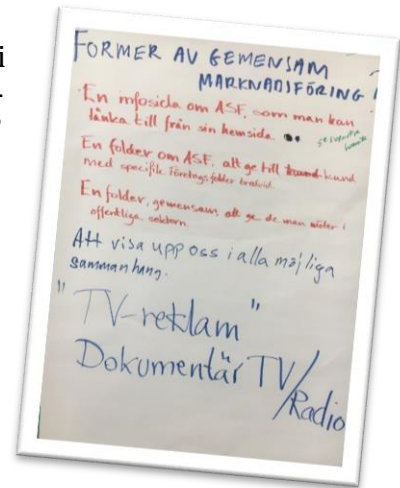 i
FORMER AV GEMENSAM
MARKNADSFÖRING
En infosida om ASF, som man kan
länka till från sin hemsida.
En folder om ASF, att ge till kund kund
med specifik företagsfolder bredvid.
En folder, gemensam att ge de man möter i
offentliga sektorn.
Att visa upp oss i alla möjliga
sammanhang.
"TV-reklam"
Dokumentär TV/
Radio